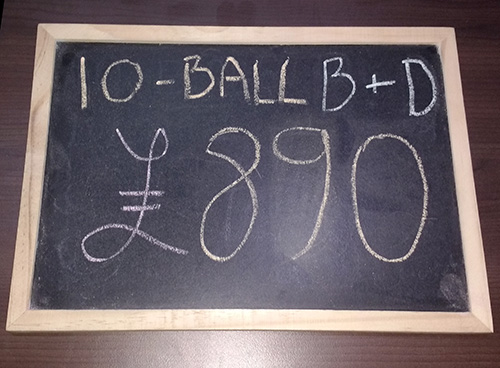 10-BALL B+D
£890